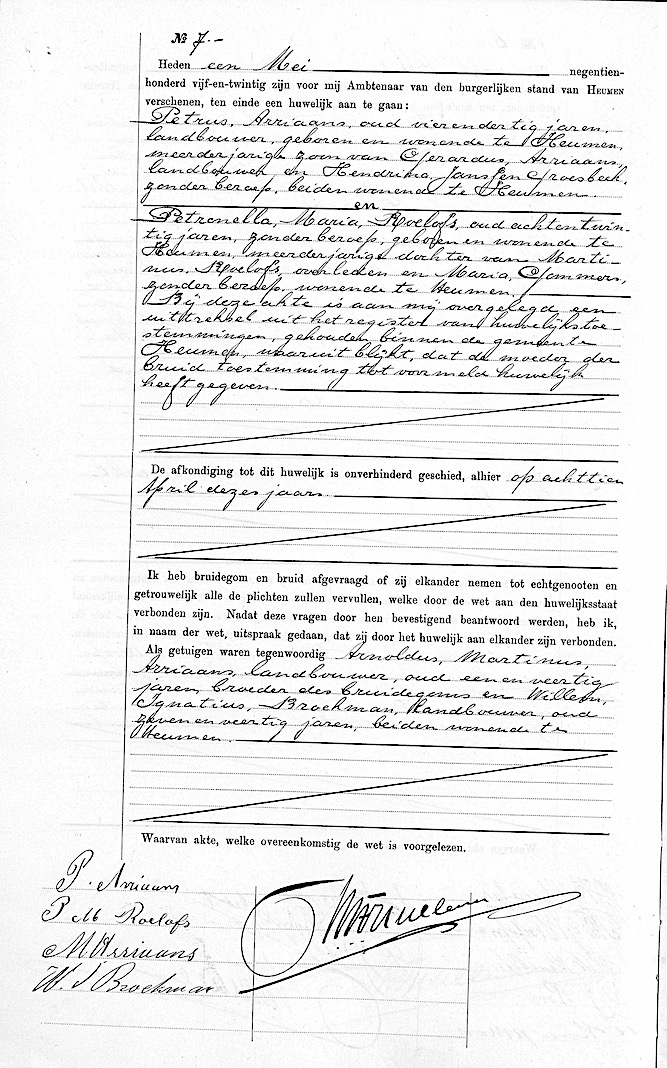 № 7.-
Heden een Mei negentien-
honderd vijf-en-twintig zijn voor mij Ambtenaar van den burgerlijken stand van HEUMEN
verschenen, ten einde een huwelijk aan te gaan:
Petrus, Arriaans, oud vierendertig jaren,
landbouwer, geboren en wonende te Heumen,
meerderjarige zoon van Gerardus, Arriaans,
landbouwer, en Hendrina, Janssen Groesbeek,
zonder beroep, beiden wonende te Heumen.
en
Petronella, Maria, Roelofs, oud achtentwin-
tig jaren, zonder beroep, geboren en wonende te
Heumen, meerderjarige dochter van Marti-
nus, Roelofs, overleden en Maria,
zonder beroep, wonende te Heumen.
Bij deze akte is aan mij overgelegd een
uittreksel uit het register van huwelijkstoe-
stemmingen, gehouden binnen de gemeente
Heumen, waaruit blijkt, dat de moeder der
bruid toestemming tot voormeld huwelijk
heeft gegeven.
De afkondiging tot dit huwelijk is onverhinderd geschied, alhier op achttien
April dezes jaars.
Ik heb bruidegom en bruid afgevraagd of zij elkander nemen tot echtgenooten en
getrouwelijk alle de plichten zullen vervullen, welke door de wet aan den huwelijksstaat
verbonden zijn. Nadat deze vragen door hen bevestigend beantwoord werden, heb ik,
in naam der wet, uitspraak gedaan, dat zij door het huwelijk aan elkander zijn verbonden.
Als getuigen waren tegenwoordig Arnoldus, Martinus,
Arriaans, landbouwer, oud een en veertig
jaren, broeder des bruidegoms en Willem,
Ignatius, Broekman, landbouwer, oud
zeven en veertig jaren, beiden wonende te
Heumen.
Waarvan akte, welke overeenkomstig de wet is voorgelezen.
P. Arriaans
P M Roelofs
M Arriaans
W. J Broekman